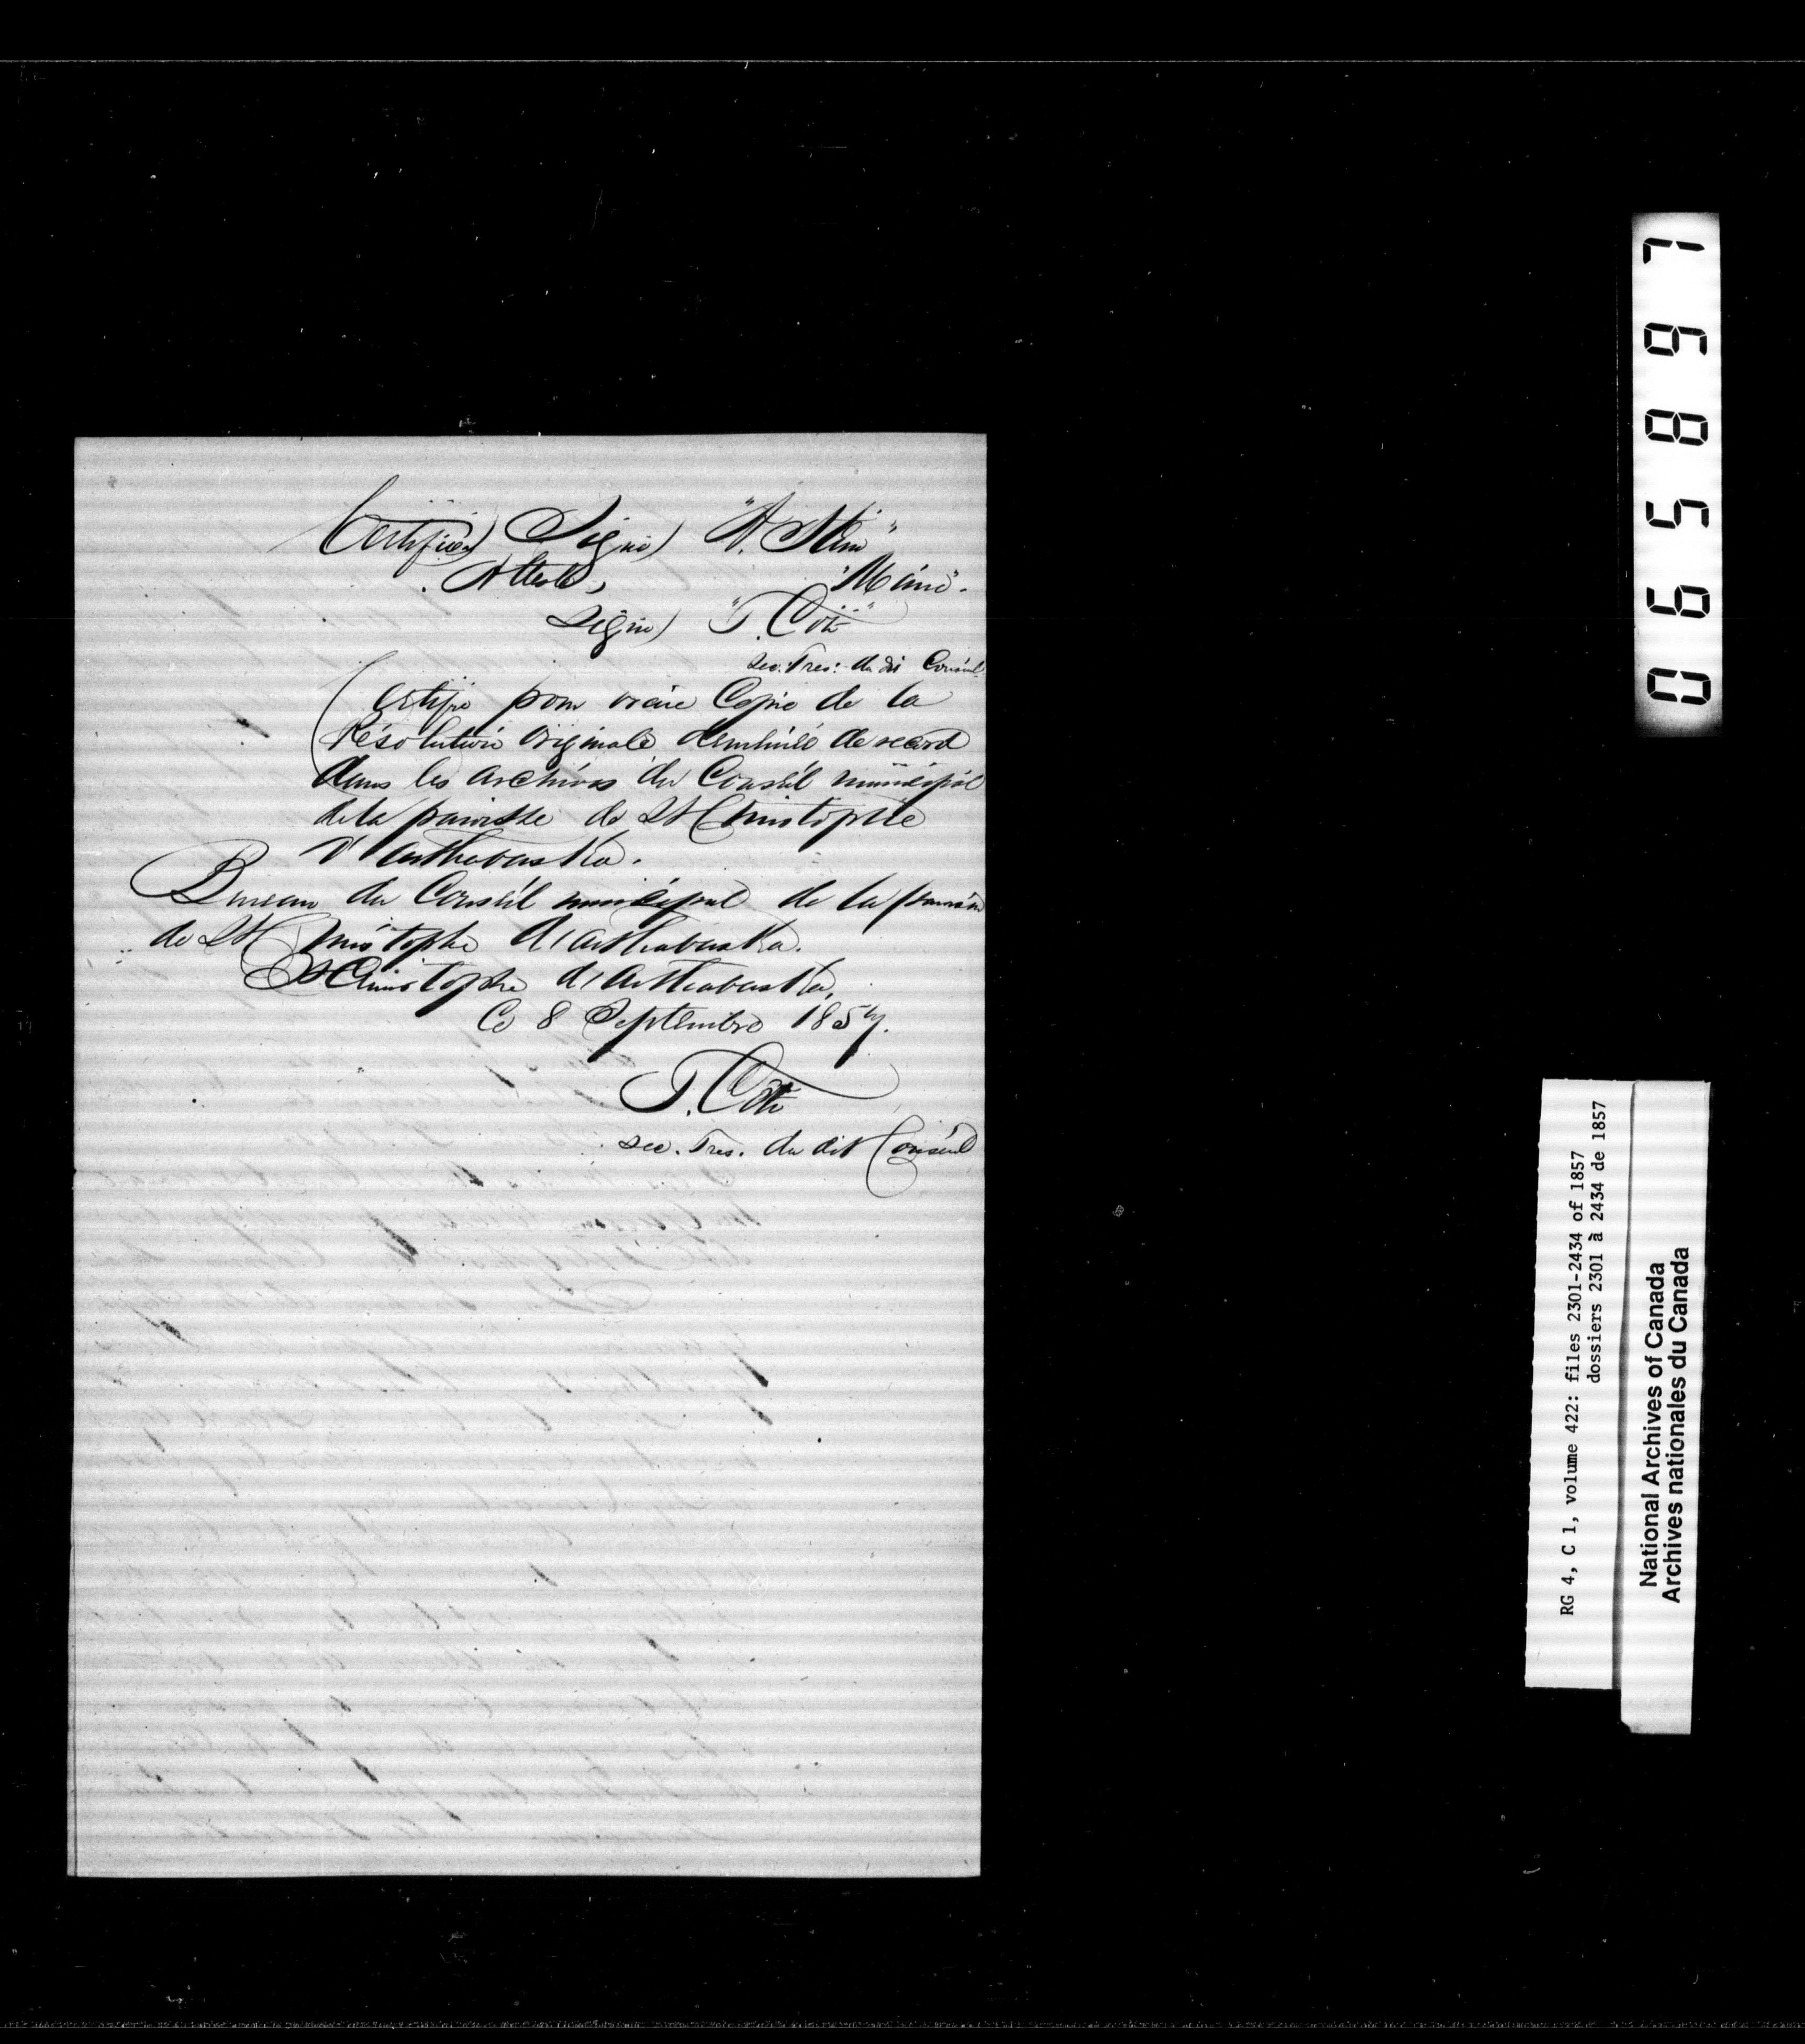 Certifié) Signé) "A. Stein"
Attesté,  "Maire".
Signé) "T. Côté"
Sec. Tres: du dit Conseil.
Certifié pour vraie Copie de la
Résolution Originale demeurée de record
dans les archives du Conseil municipal
de la paroisse de St Christophe
d'arthabaska.
Bureau du Conseil municipal de la paroisse
de St Christophe d'arthabaska.
St Christophe d'arthabaska,
Ce 8 Septembre 1857.
T. Côté
Sec. Tres. du dit Conseil
065897
RG 4, C 1, volume 422: files 2301-2434 of 1857
dossiers 2301 à 2434 de 1857
National Archives of Canada
Archives nationales du Canada